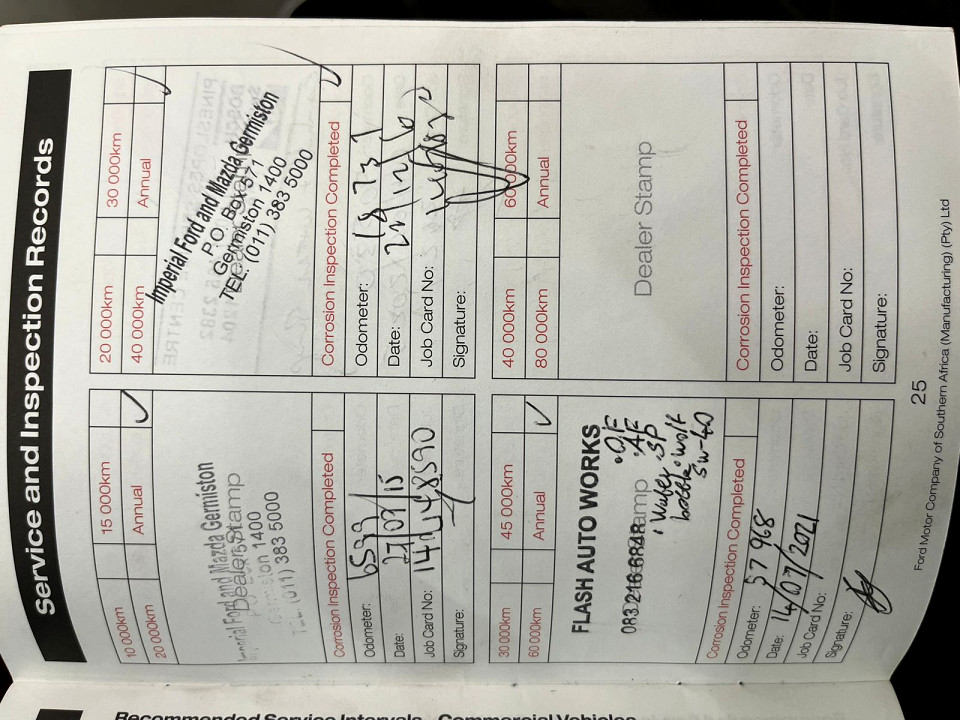 Service and Inspection Records
10 000km 15 000km
20 000km Annual ✓
Imperial Ford and Mazda Germiston
Dealer Stamp
1400
TEL: (011) 383 5000
Corrosion Inspection Completed
Odometer: 6593
Date: 27/07/15
Job Card No: 14248590
Signature:
20 000km 30 000km
40 000km Annual ✓
Imperial Ford and Mazda Germiston
P.O. Box 571
Germiston 1400
TEL: (011) 383 5000
Corrosion Inspection Completed ✓
Odometer:
Date:
Job Card No:
Signature:
30 000km 45 000km
60 000km Annual ✓
FLASH AUTO WORKS
Dealer Stamp
083 216 6848
• O/F
• A/F
• SP
5W-40
Corrosion Inspection Completed
Odometer: 57968
Date: 14/07/2021
Job Card No:
Signature:
40 000km 60 000km
80 000km Annual
Dealer Stamp
Corrosion Inspection Completed
Odometer:
Date:
Job Card No:
Signature:
25
Ford Motor Company of Southern Africa (Manufacturing) (Pty) Ltd
Recommended Service Intervals - Commercial Vehicles